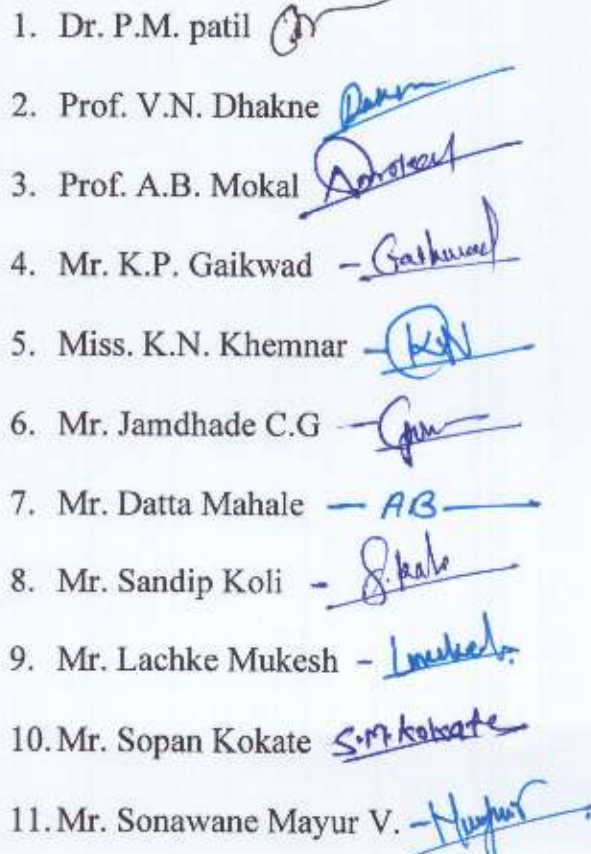 1. Dr. P.M. patil
2. Prof. V.N. Dhakne
3. Prof. A.B. Mokal
4. Mr. K.P. Gaikwad – Gaikwad
5. Miss. K.N. Khemnar – KN
6. Mr. Jamdhade C.G –
7. Mr. Datta Mahale – AB –
8. Mr. Sandip Koli -
9. Mr. Lachke Mukesh -
10. Mr. Sopan Kokate S.M. Kokate
11. Mr. Sonawane Mayur V. -